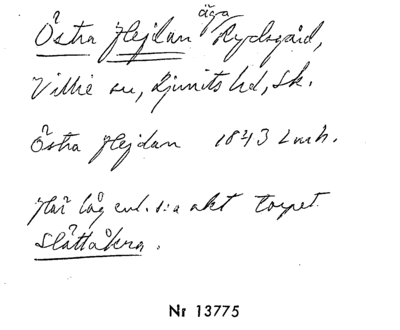 äga
Östra Hejdan Rydsgård,
Villie sn, Ljunits hd, Sk.
Östra Hejdan 1843 Lmh.
Här låg enl. s:a akt torpet
Slättåkra.
Nr 13775